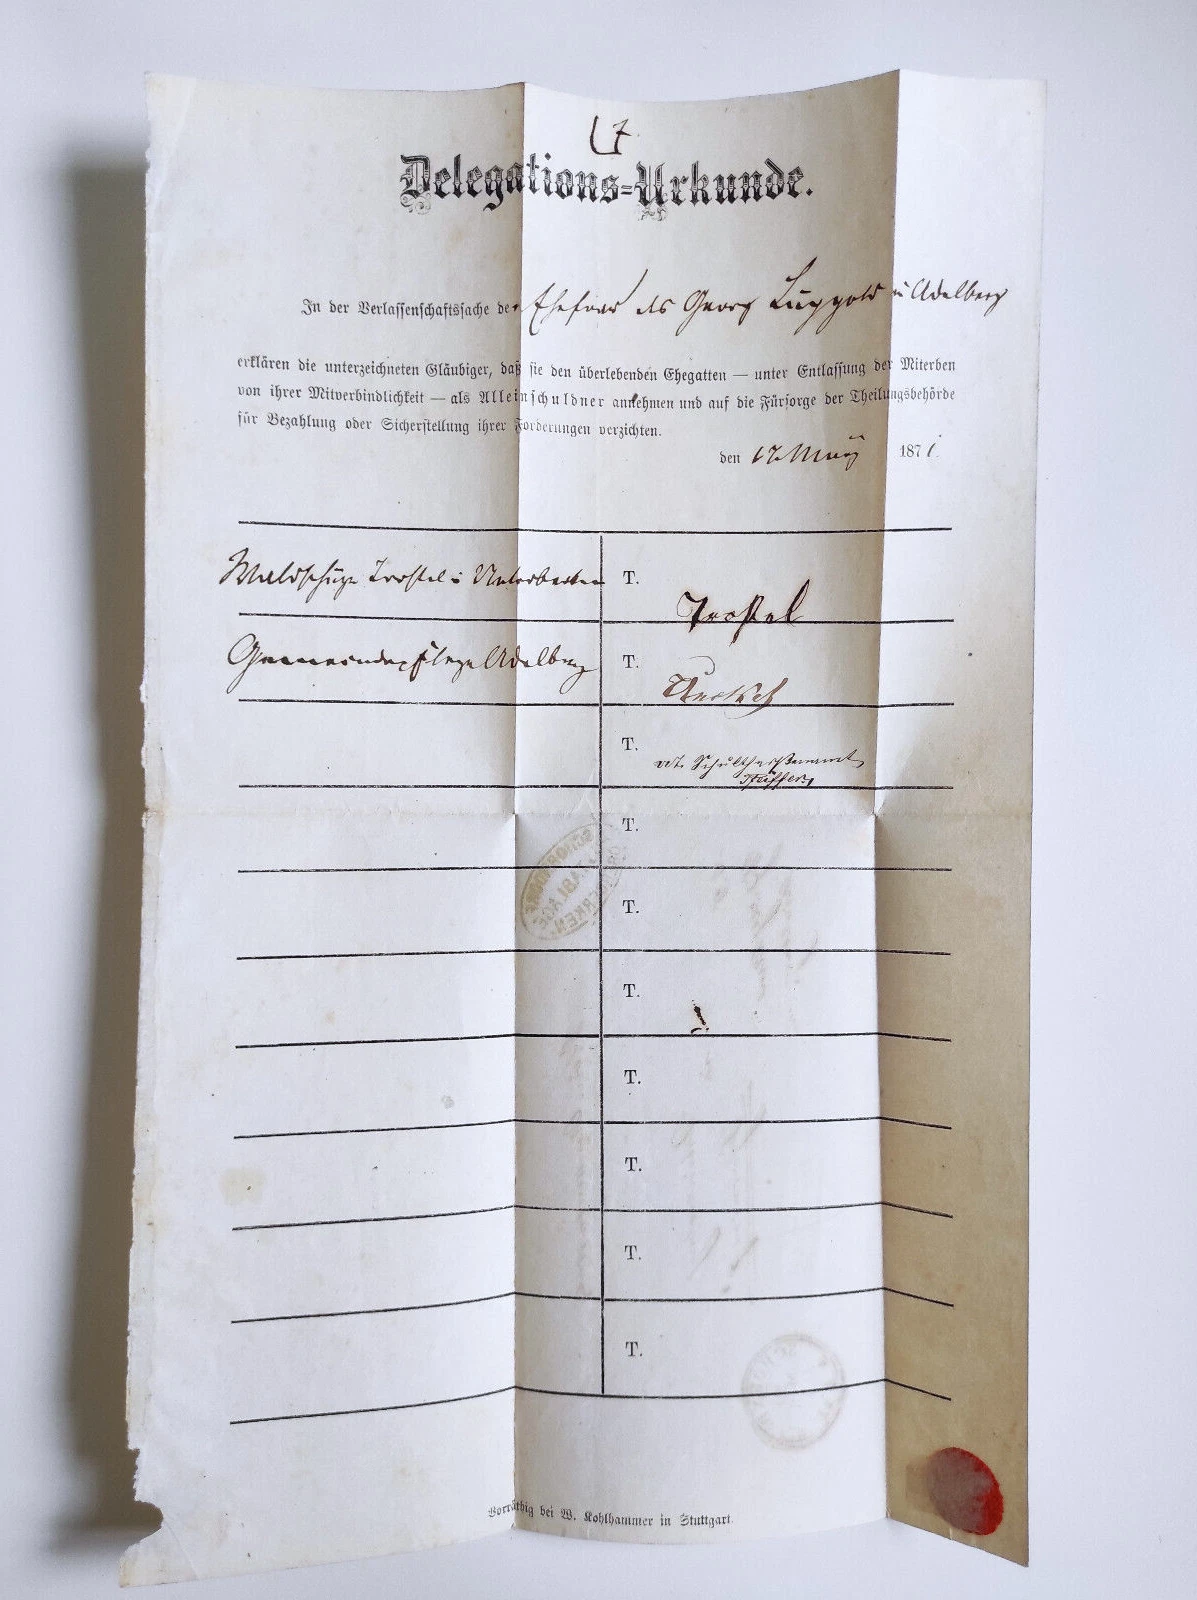 7
Delegations-Urkunde.
In der Verlassenschaftssache der Ehefrau des Georg Lüpgold in Adelberg
erklären die unterzeichneten Gläubiger, daß sie den überlebenden Ehegatten — unter Entlassung der Miterben
von ihrer Mitverbindlichkeit — als Alleinschuldner annehmen und auf die Fürsorge der Theilungsbehörde
für Bezahlung oder Sicherstellung ihrer Forderungen verzichten.
den 17. May 1871.
Waldschütz Trostel in Unterberken T. Trostel
Gemeindepflege Adelberg T.
T. vdt. Schultheißenamt
T.
T.
T.
T.
T.
T.
T.
Vorräthig bei W. Kohlhammer in Stuttgart.